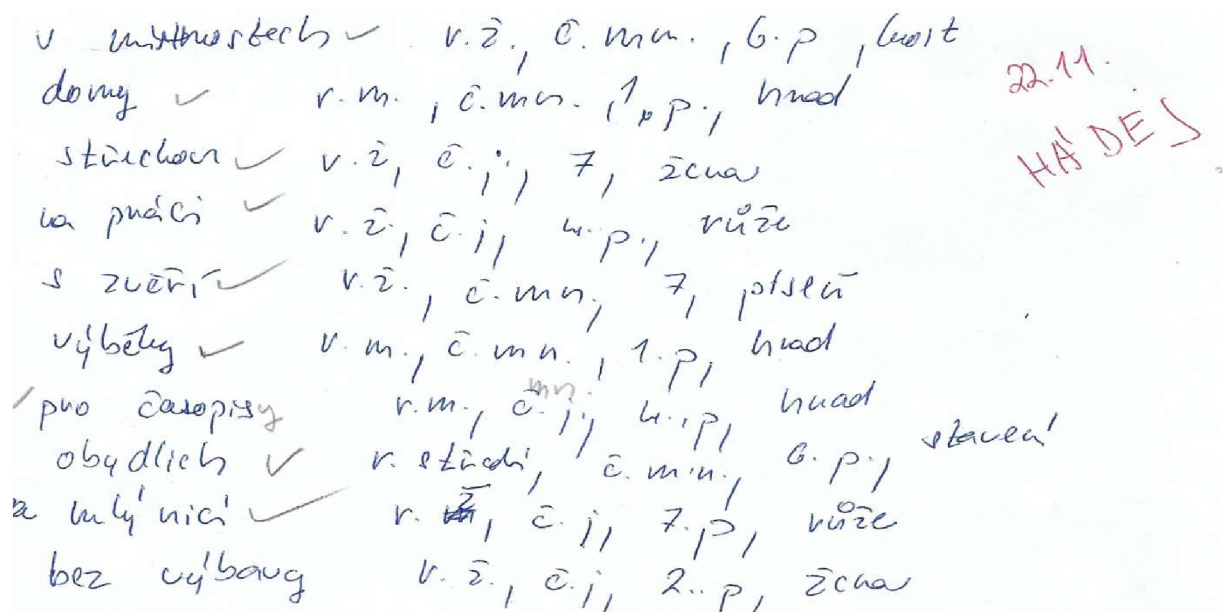 v místnostech ✓ r.ž., č.mn., 6.p, kost
22.11.
domy ✓ r.m., č.mn., 1.p., hrad
HÁDEJ
střechou ✓ r.ž, č.j., 7, žena
na práci ✓ r.ž., č.j, 4.p., růže
s zvěří ✓ r.ž., č.mn., 7, píseň
výběhy ✓ r.m., č.mn., 1.p, hrad
✓ pro časopisy r.m., č.j., mn. 4.p, hrad
obydlích ✓ r. střední, č.mn., 6.p., stavení
mlýnicí ✓ r. ž, č.j, 7.p, růže
bez výbavy r.ž., č.j, 2..p, žena